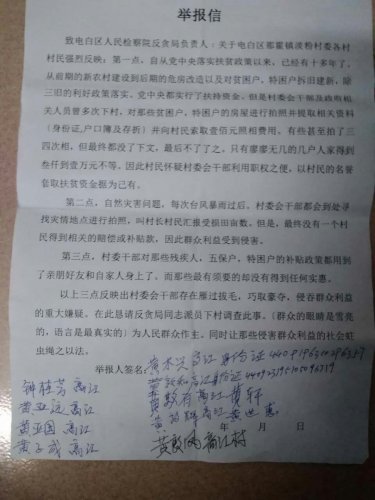 举报信
致电白区人民检察院反贪局负责人：关于电白区那霍镇淡粉村委各村
村民强烈反映：第一点，自从党中央落实扶贫政策以来，已经有十多年了，
从前期的新农村建设到后期的危房改造以及对贫困户，特困户拆旧建新，除
三旧的利好政策落实。党中央都实行了扶持资金。但是村委会干部及政府相
关人员曾多次下村，对那些贫困户，特困户的房屋进行拍照并提取相关资料
（身份证,户口簿及存折）并向村民索取壹佰元照相费用。有些甚至拍了三
四次相，但最终都没了下文，最后不了了之。只有廖廖无几的几户人家得到
叁仟到壹万元不等。因此村民怀疑村委会干部利用职权之便，以村民的名誉
套取扶贫资金据为己有。
第二点，自然灾害问题，每次台风暴雨过后，村委会干部都会到处寻
找灾情地点进行拍照，叫村长村民汇报受损田亩数。但是，最终没有一个村
民得到相关的赔偿或补贴款，因此群众利益受到侵害。
第三点，村委干部对那些残疾人，五保户，特困户的补贴政策都用到
了亲朋好友和自家人身上了。而那些最有须要的却没有得到任何实惠。
以上三点反映出村委会干部存在雁过拔毛，巧取豪夺，侵吞群众利益
的重大嫌疑。在此恳请反贪局同志派员下村调查此事。〔群众的眼睛是雪亮
的，语言是最真实的〕为人民群众作主。同时让那些侵害群众利益的社会蛀
虫绳之以法。
举报人签名：
钟桂芳 高江
黄亚远 高江
黄亚国 高江
黄子成 高江
年 月 日